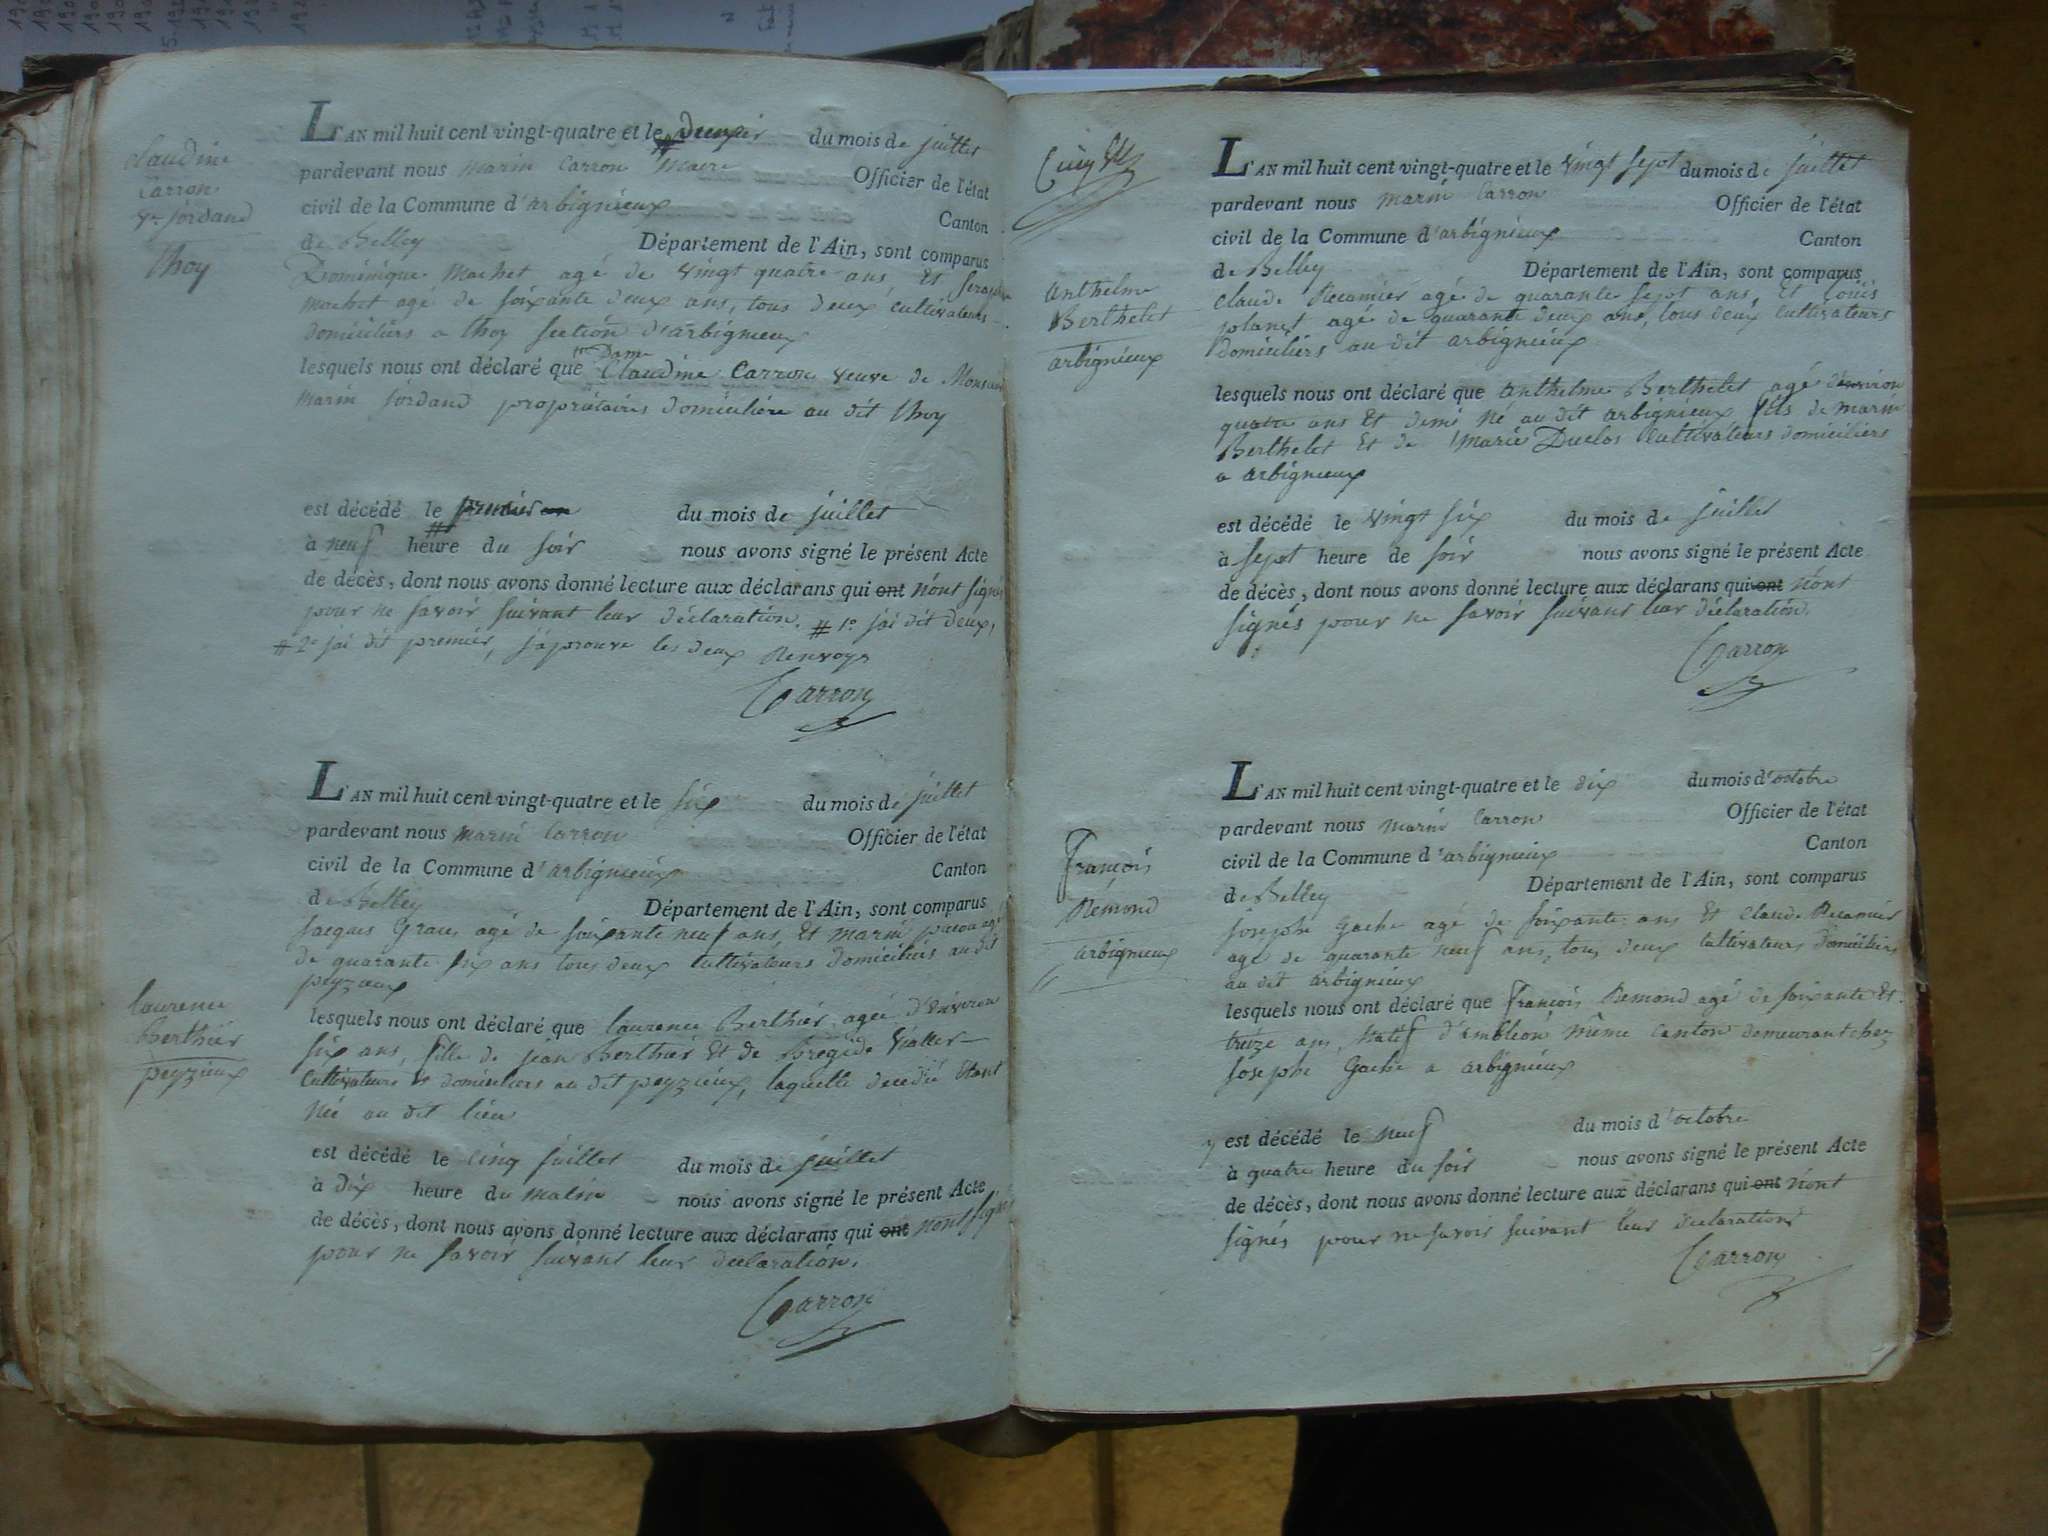 claudine
Carron
Ve Jordand
thoy
L'AN mil huit cent vingt-quatre et le deuxier du mois de juillet
pardevant nous marin Carron Maire Officier de l'état
civil de la Commune d'arbignieux Canton
de Belley Département de l'Ain, sont comparus
Dominique Machet agé de vingt quatre ans Et
machet agé de soixante deux ans, tous deux cultivateurs
domiciliers a thoy section d'arbignieux
lesquels nous ont déclaré que Dame Claudine Carron veuve de Monsieur
marin jordand propriétaires domicilière au dit thoy
est décédé le premier du mois de juillet
à neuf heure du soir nous avons signé le présent Acte
de décès, dont nous avons donné lecture aux déclarans qui ont n'ont signés
pour ne savoir suivant leur déclaration. # 1º jai dit deux,
# 2º jai dit premier, j'aprouve les deux Renvoys
Carron
laurence
Berthier
peyzieux
L'AN mil huit cent vingt-quatre et le six du mois de juillet
pardevant nous marin Carron Officier de l'état
civil de la Commune d'arbignieux Canton
de Belley Département de l'Ain, sont comparus
jacques agé de soixante neuf ans Et marin agé
de quarante six ans tous deux Cultivateurs domiciliés au dit
peyzieux
lesquels nous ont déclaré que laurence Berthier agée d'environ
six ans, fille de jean Berthier Et de Bregide
Cultivateurs domiciliers au dit peyzieux, laquelle decedié Etant
née au dit lieu
est décédé le cinq juillet du mois de juillet
à dix heure du matin nous avons signé le présent Acte
de décès, dont nous avons donné lecture aux déclarans qui ont n'ont signés
pour ne savoir suivant leur déclaration.
Carron
anthelme
Berthelet
arbignieux
L'AN mil huit cent vingt-quatre et le vingt sept du mois de juillet
pardevant nous marin Carron Officier de l'état
civil de la Commune d'arbignieux Canton
de Belley Département de l'Ain, sont comparus
claude Recamier agé de quarante sept ans, Et loüis
planet agé de quarante deux ans, tous deux cultivateurs
domiciliers au dit arbignieux
lesquels nous ont déclaré que anthelme Berthelet agé d'environ
quatre ans Et demi né au dit arbignieux fils de marin
Berthelet Et de Marie Duclos Cultivateurs domiciliers
a arbignieux
est décédé le vingt six du mois de juillet
à sept heure de soir nous avons signé le présent Acte
de décès, dont nous avons donné lecture aux déclarans qui ont n'ont
signés pour ne savoir suivant leur déclaration.
Carron
françois
Remond
arbignieux
L'AN mil huit cent vingt-quatre et le dix du mois d'octobre
pardevant nous marin Carron Officier de l'état
civil de la Commune d'arbignieux Canton
de Belley Département de l'Ain, sont comparus
joseph Gache agé de soixante ans Et Claude Recamier
agé de quarante neuf ans, tous deux cultivateurs domiciliers
au dit arbignieux
lesquels nous ont déclaré que françois Remond agé de soixante Et
treize ans, Natif d'ambléon même canton demeurant chez
joseph Gache a arbignieux
y est décédé le neuf du mois d'octobre
à quatre heure du soir nous avons signé le présent Acte
de décès, dont nous avons donné lecture aux déclarans qui ont n'ont
signés pour ne savoir suivant leur declaration
Carron